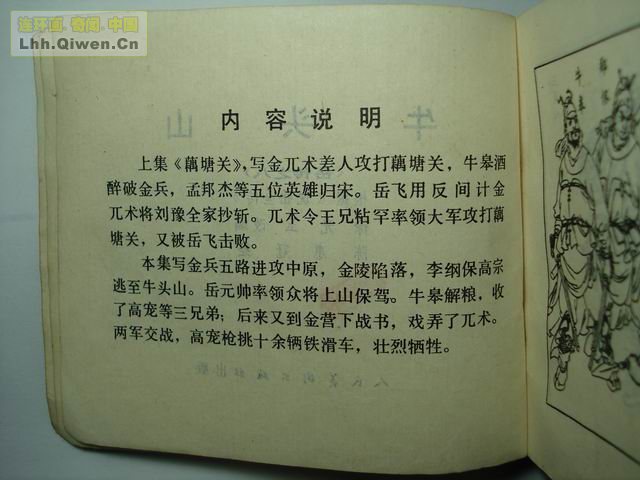 连环画.奇闻.中国
Lhh.Qiwen.Cn
内容说明
上集《藕塘关》,写金兀术差人攻打藕塘关,牛皋酒
醉破金兵,孟邦杰等五位英雄归宋。岳飞用反间计金
兀术将刘豫全家抄斩。兀术令王兄粘罕率领大军攻打藕
塘关,又被岳飞击败。
本集写金兵五路进攻中原,金陵陷落,李纲保高宗
逃至牛头山。岳元帅率领众将上山保驾。牛皋解粮,收
了高宠等三兄弟;后来又到金营下战书,戏弄了兀术。
两军交战,高宠枪挑十余辆铁滑车,壮烈牺牲。
牛头山
人民美术出版社出版
牛皋